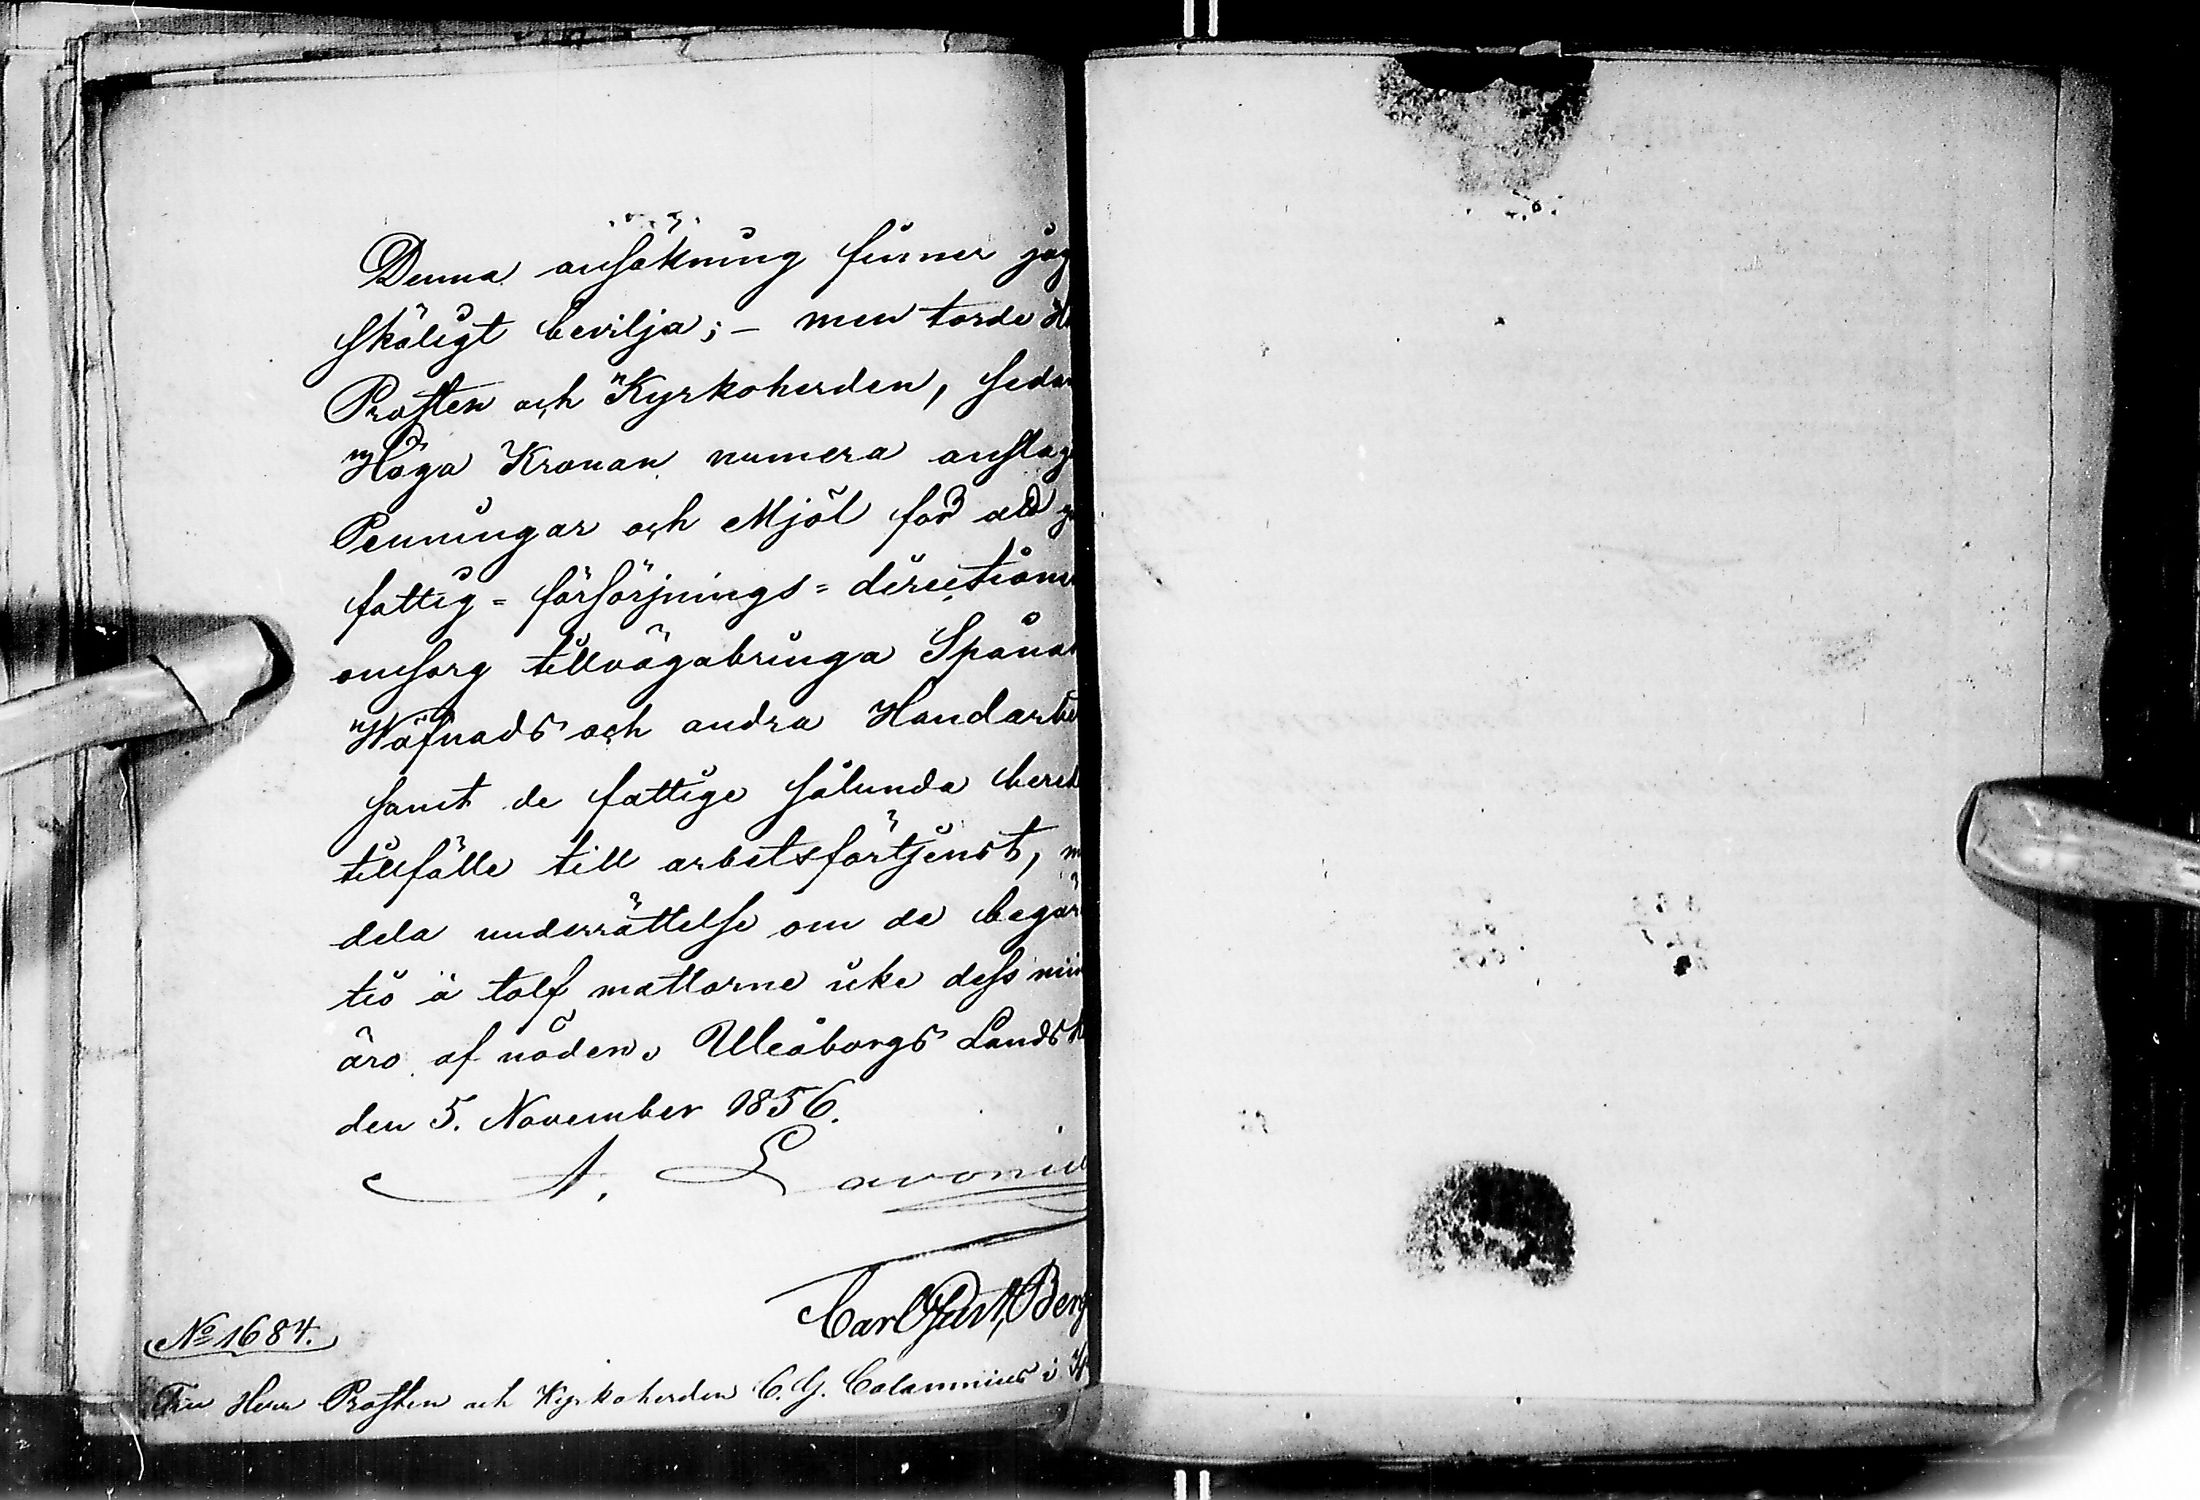 Denna ansökning finner jag
skäligt bevilja; – men torde
Prosten och Kyrkoherden, sedan
Höga Kronan numera anslag
Penningar och Mjöl för att
fattig-försörjnings-directione
omsorg tillvägabringa Spånad
Wäfnads och andra Handarbe
samt de fattige sålunda bered
tillfälle till arbetsförtjenst, m
dela underrättelse om de begär
tio à tolf mattorne icke dess min
äro af nöden. Uleåborgs Landsk
den 5. November 1856.
A. Lavoniu
Carl Gust. Berg
No 1684.
Till Herr Prosten och Kyrkoherden C. G. Calamnius i